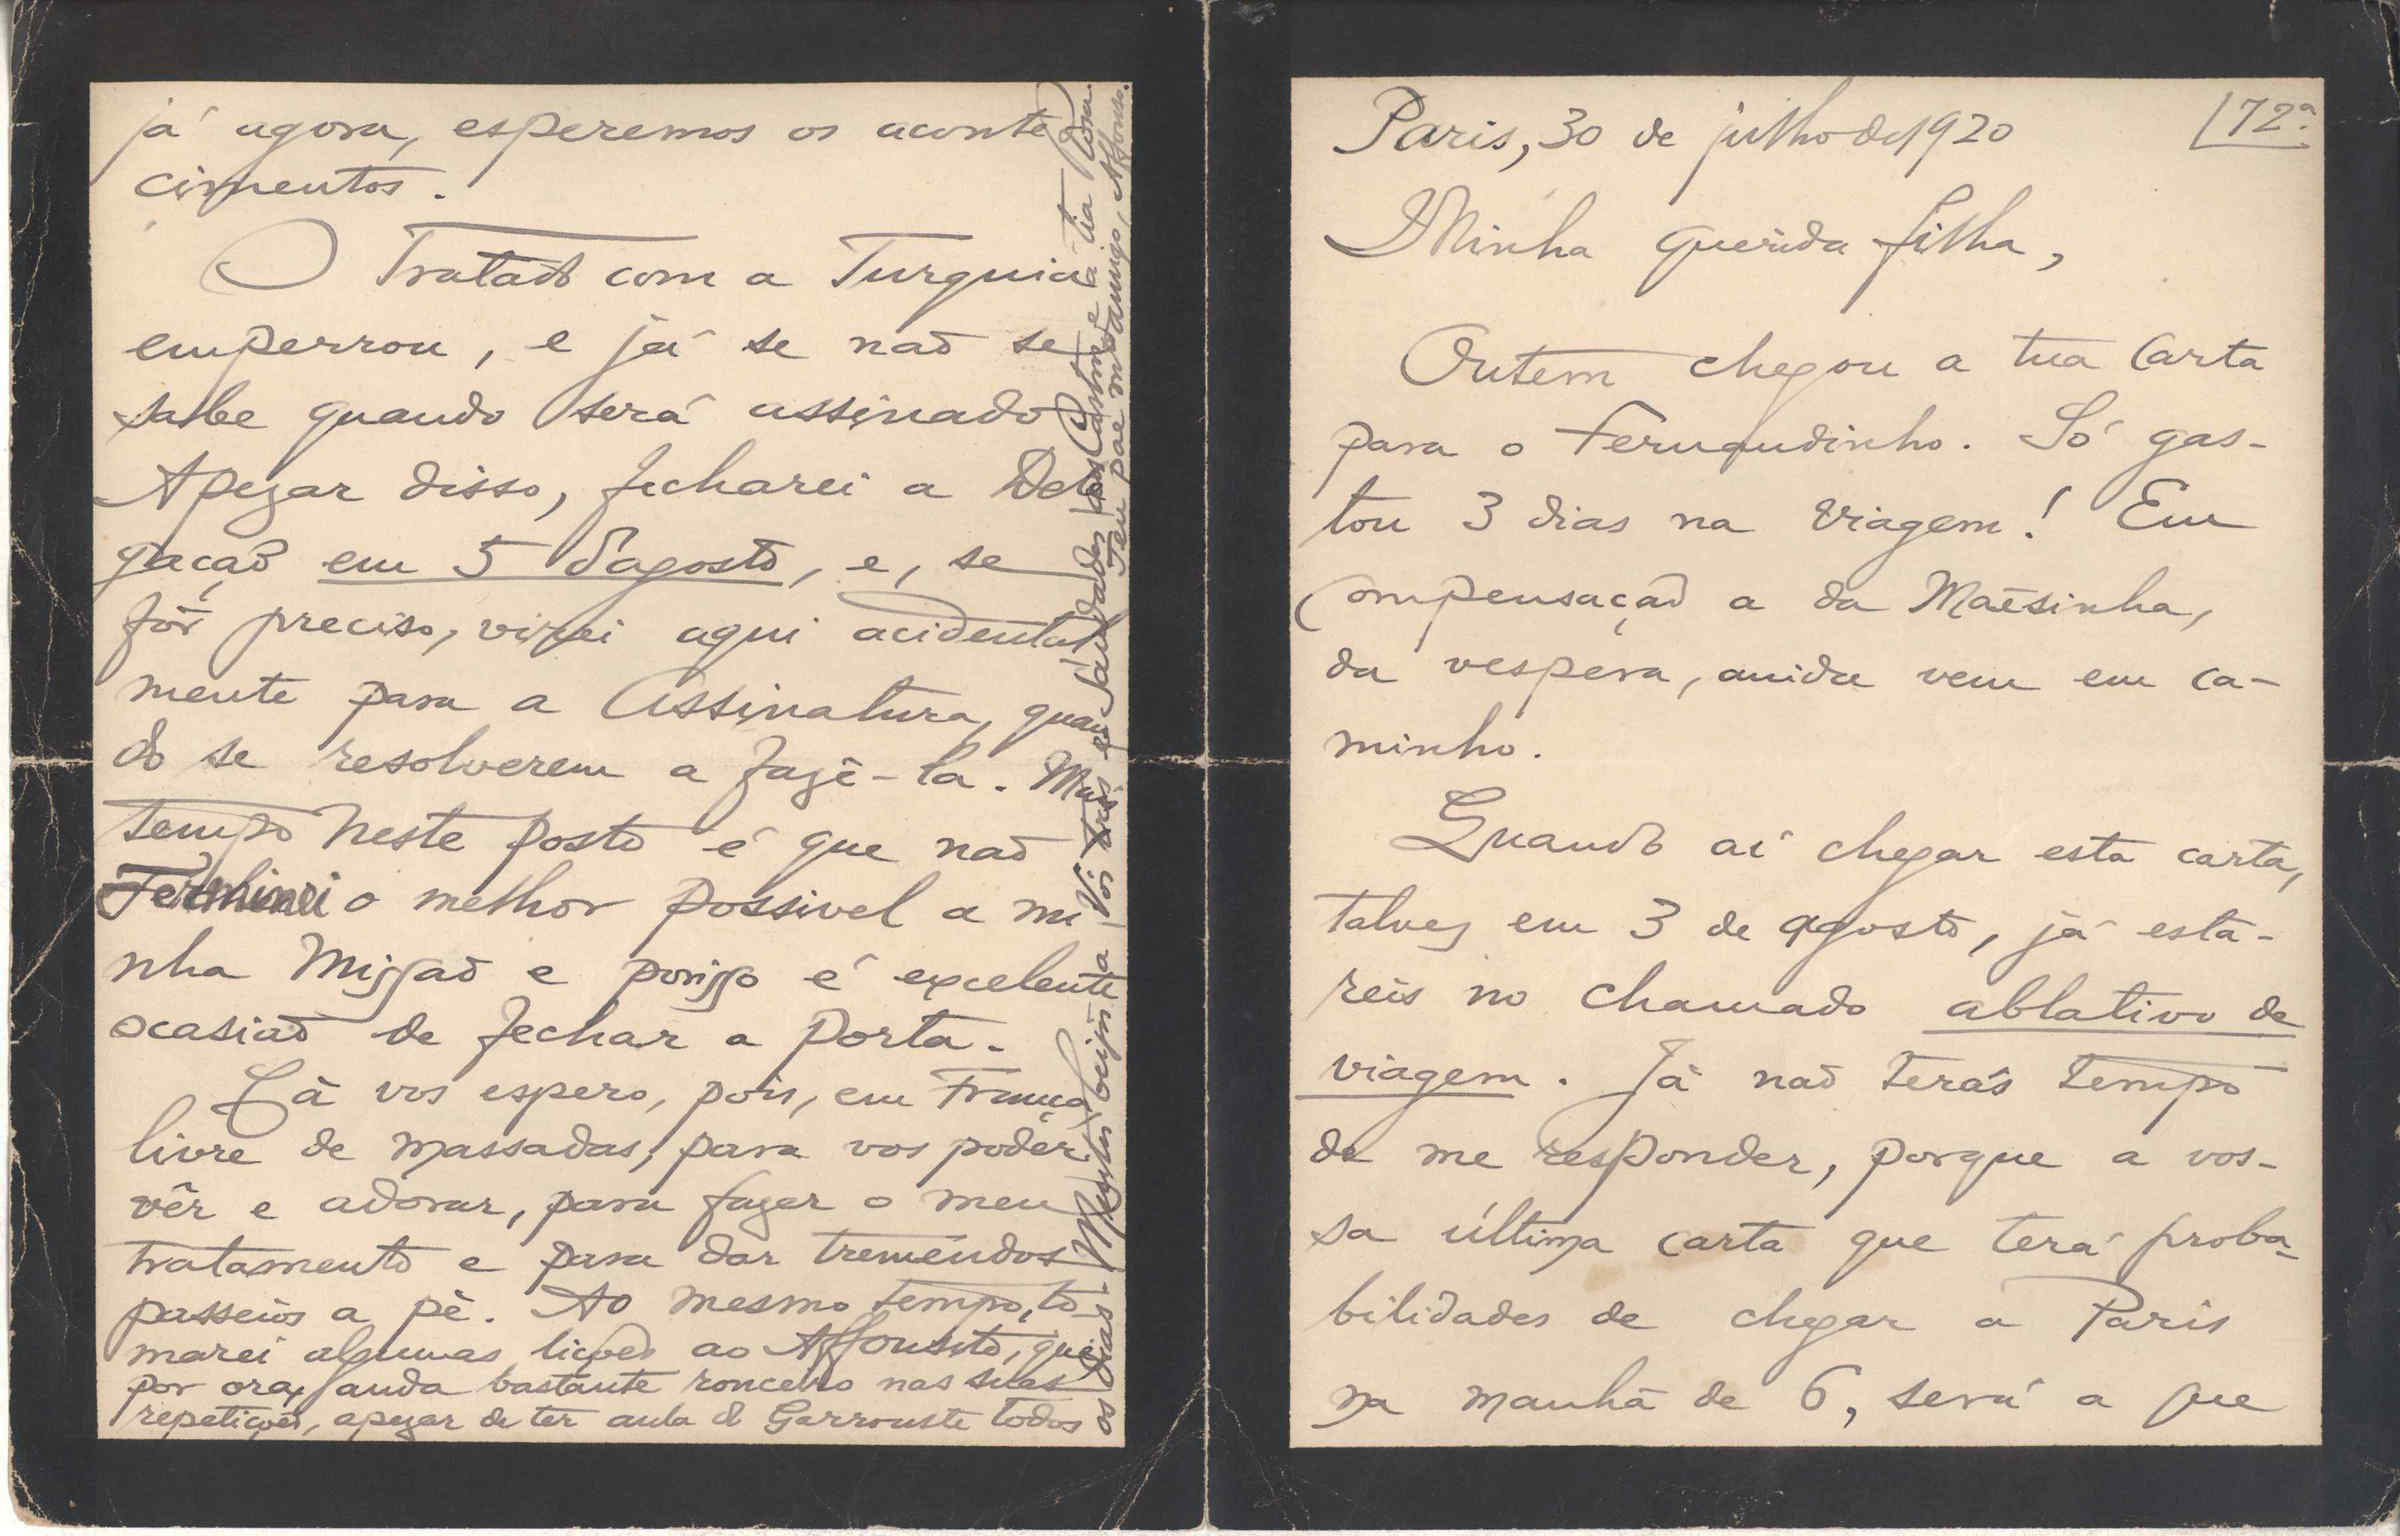 Paris, 30 de julho de 1920
72ª
Minha querida filha,
Ontem chegou a tua carta
para o Fernandinho. Só gas-
tou 3 dias na viagem! Em
compensação a da Mãesinha,
da vespera, ainda vem em ca-
minho.
Quando aí chegar esta carta,
talvez em 3 de agosto, já esta-
reis no chamado ablativo de
viagem. Já não terás tempo
de me responder, porque a vos-
sa última carta que terá proba-
bilidades de chegar a Paris
na manhã de 6, será a que
já agora, esperemos os aconte
cimentos.
O Tratado com a Turquia
emperrou, e já se não se
sabe quando será assinado
Apezar disso, fecharei a Dele
gação em 5 d'agosto, e, se
fôr preciso, virei aqui acidental
mente para a assinatura, quan
do se resolverem a fazê-la. Mais
tempo neste posto é que não
Terminei o melhor possivel a mi
nha Missão e porisso é excelente
ocasião de fechar a porta.
Lá vos espero, pois, em França,
livre de massadas, para vos poder
vêr e adorar, para fazer o meu
tratamento e para dar tremendos
passeios a pé. Ao mesmo tempo, to
marei algumas lições ao Affonsito, que
por ora, anda bastante ronceiro nas suas
repetições, apezar de ter aula do Garrouste todos
os dias. Muitos beijos a Vós três e saudades aos Casimiro e á tia
Teu pae m.to amigo, Affonso.